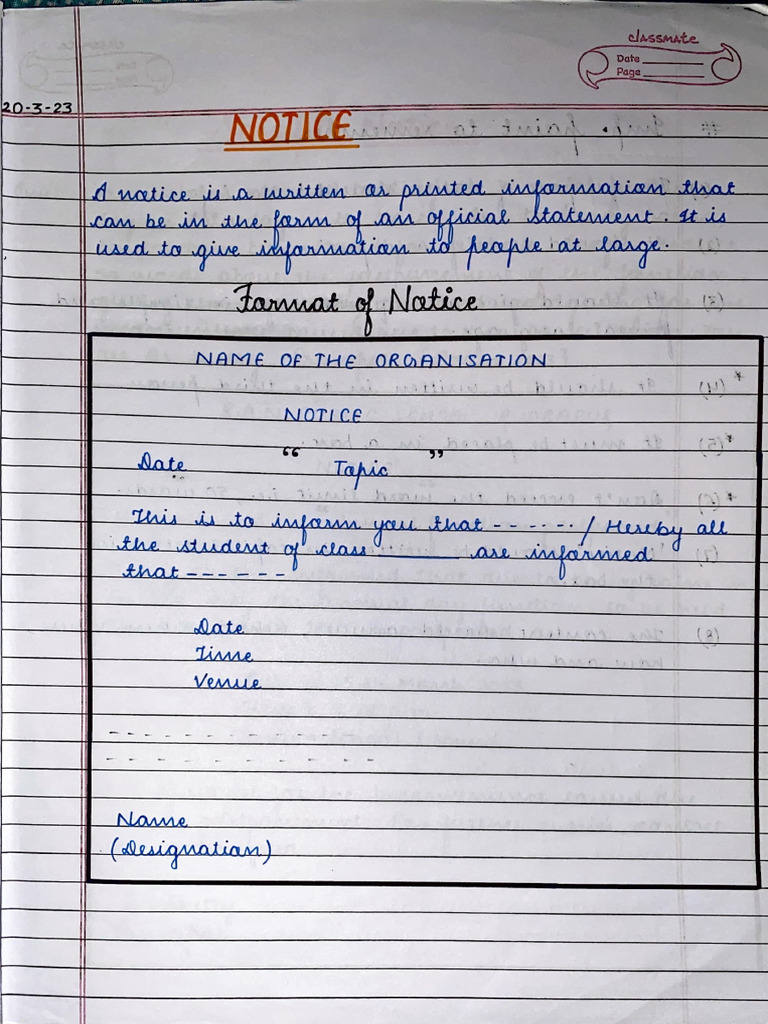 classmate
Date
Page
20-3-23
NOTICE
A notice is a written or printed information that
can be in the form of an official statement. It is
used to give information to people at large.
Format of Notice
NAME OF THE ORGANISATION
NOTICE
Date “ Topic ”
This is to inform you that ------ / Hereby all
the student of class ______ are informed
that ------
Date
Time
Venue
- - - - - - - - - - - - - - - -
- - - - - - - - - - - - -
Name
(Designation)